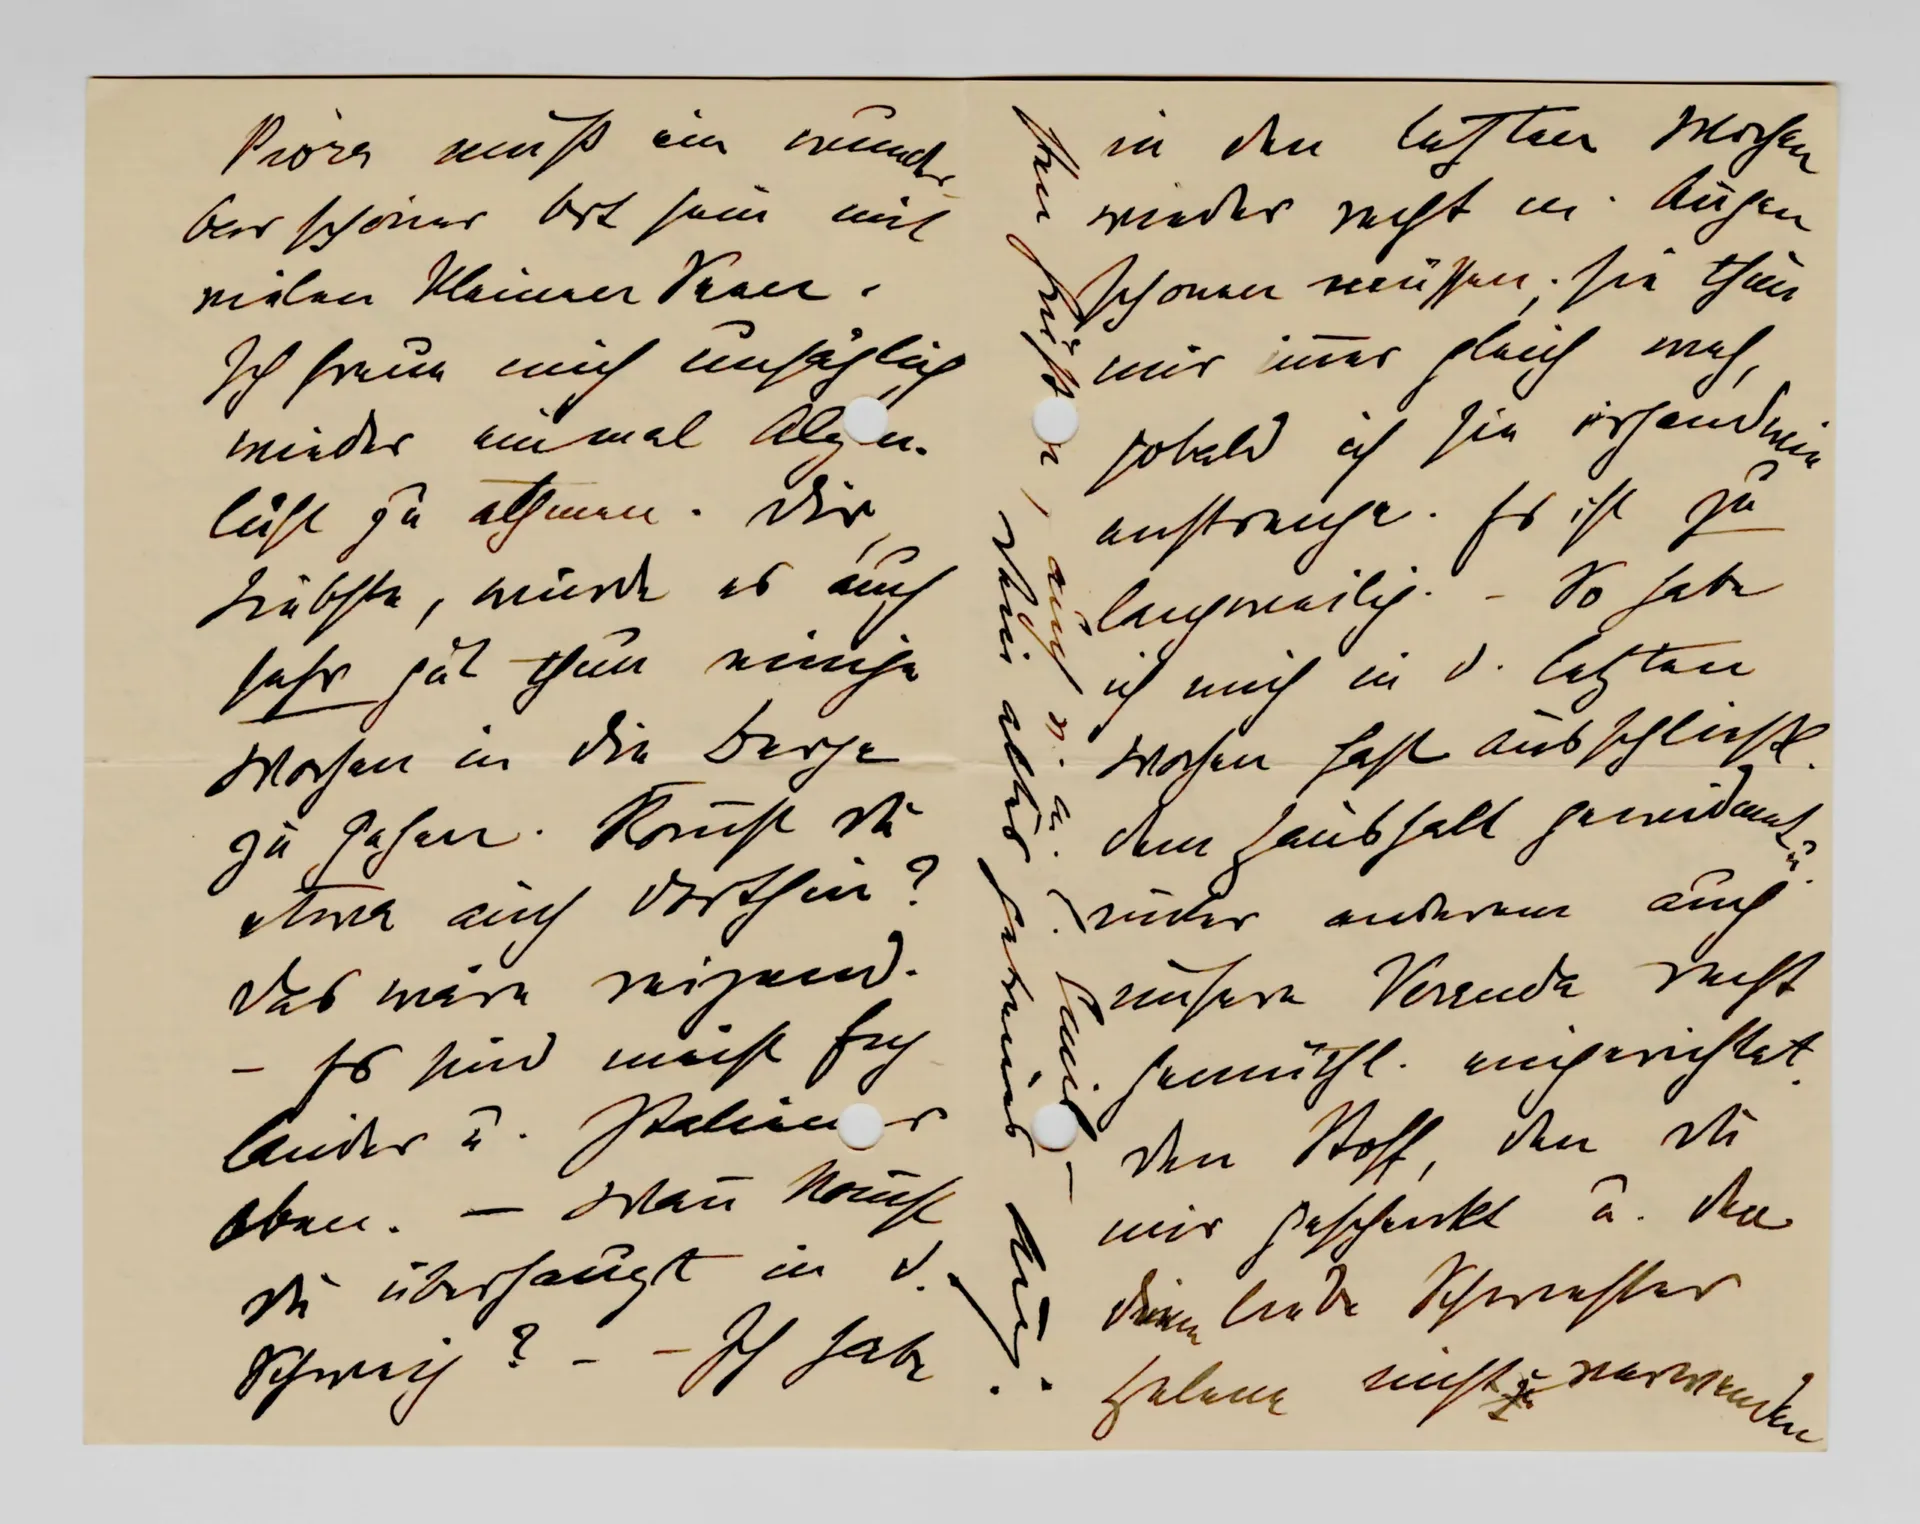 Piora muß ein wunder-
bar schöner Ort sein mit
vielen kleinen Seen.
Ich freue mich unsäglich
wieder einmal Alpen-
luft zu athmen. Dir,
Liebste, würde es auch
sehr gut thun einige
Wochen in die Berge
zu gehen. Kom̄st Du
etwa auch dorthin?
Das wäre reizend.
– Es sind meist Eng
länder u. Italiener
oben. – Wan̄ kom̄st
Du überhaupt in d.
Schweiz? – – Ich habe
in den letzten Wochen
wieder recht m. Augen
schonen müssen; sie thun
mir im̄er gleich weh,
sobald ich sie irgendwie
anstrenge. Es ist zu
langweilig. – So habe
ich mich in d. letzten
Wochen fast ausschließl.
dem Haushalt gewidmet u.
unter anderem auch
unsere Veranda recht
gemüthl. eingerichtet.
Den Stoff, den Du
mir geschenkt u. den
Deine liebe Schwester
Helene nicht zu verwenden
auch v.
Dein altes getreues